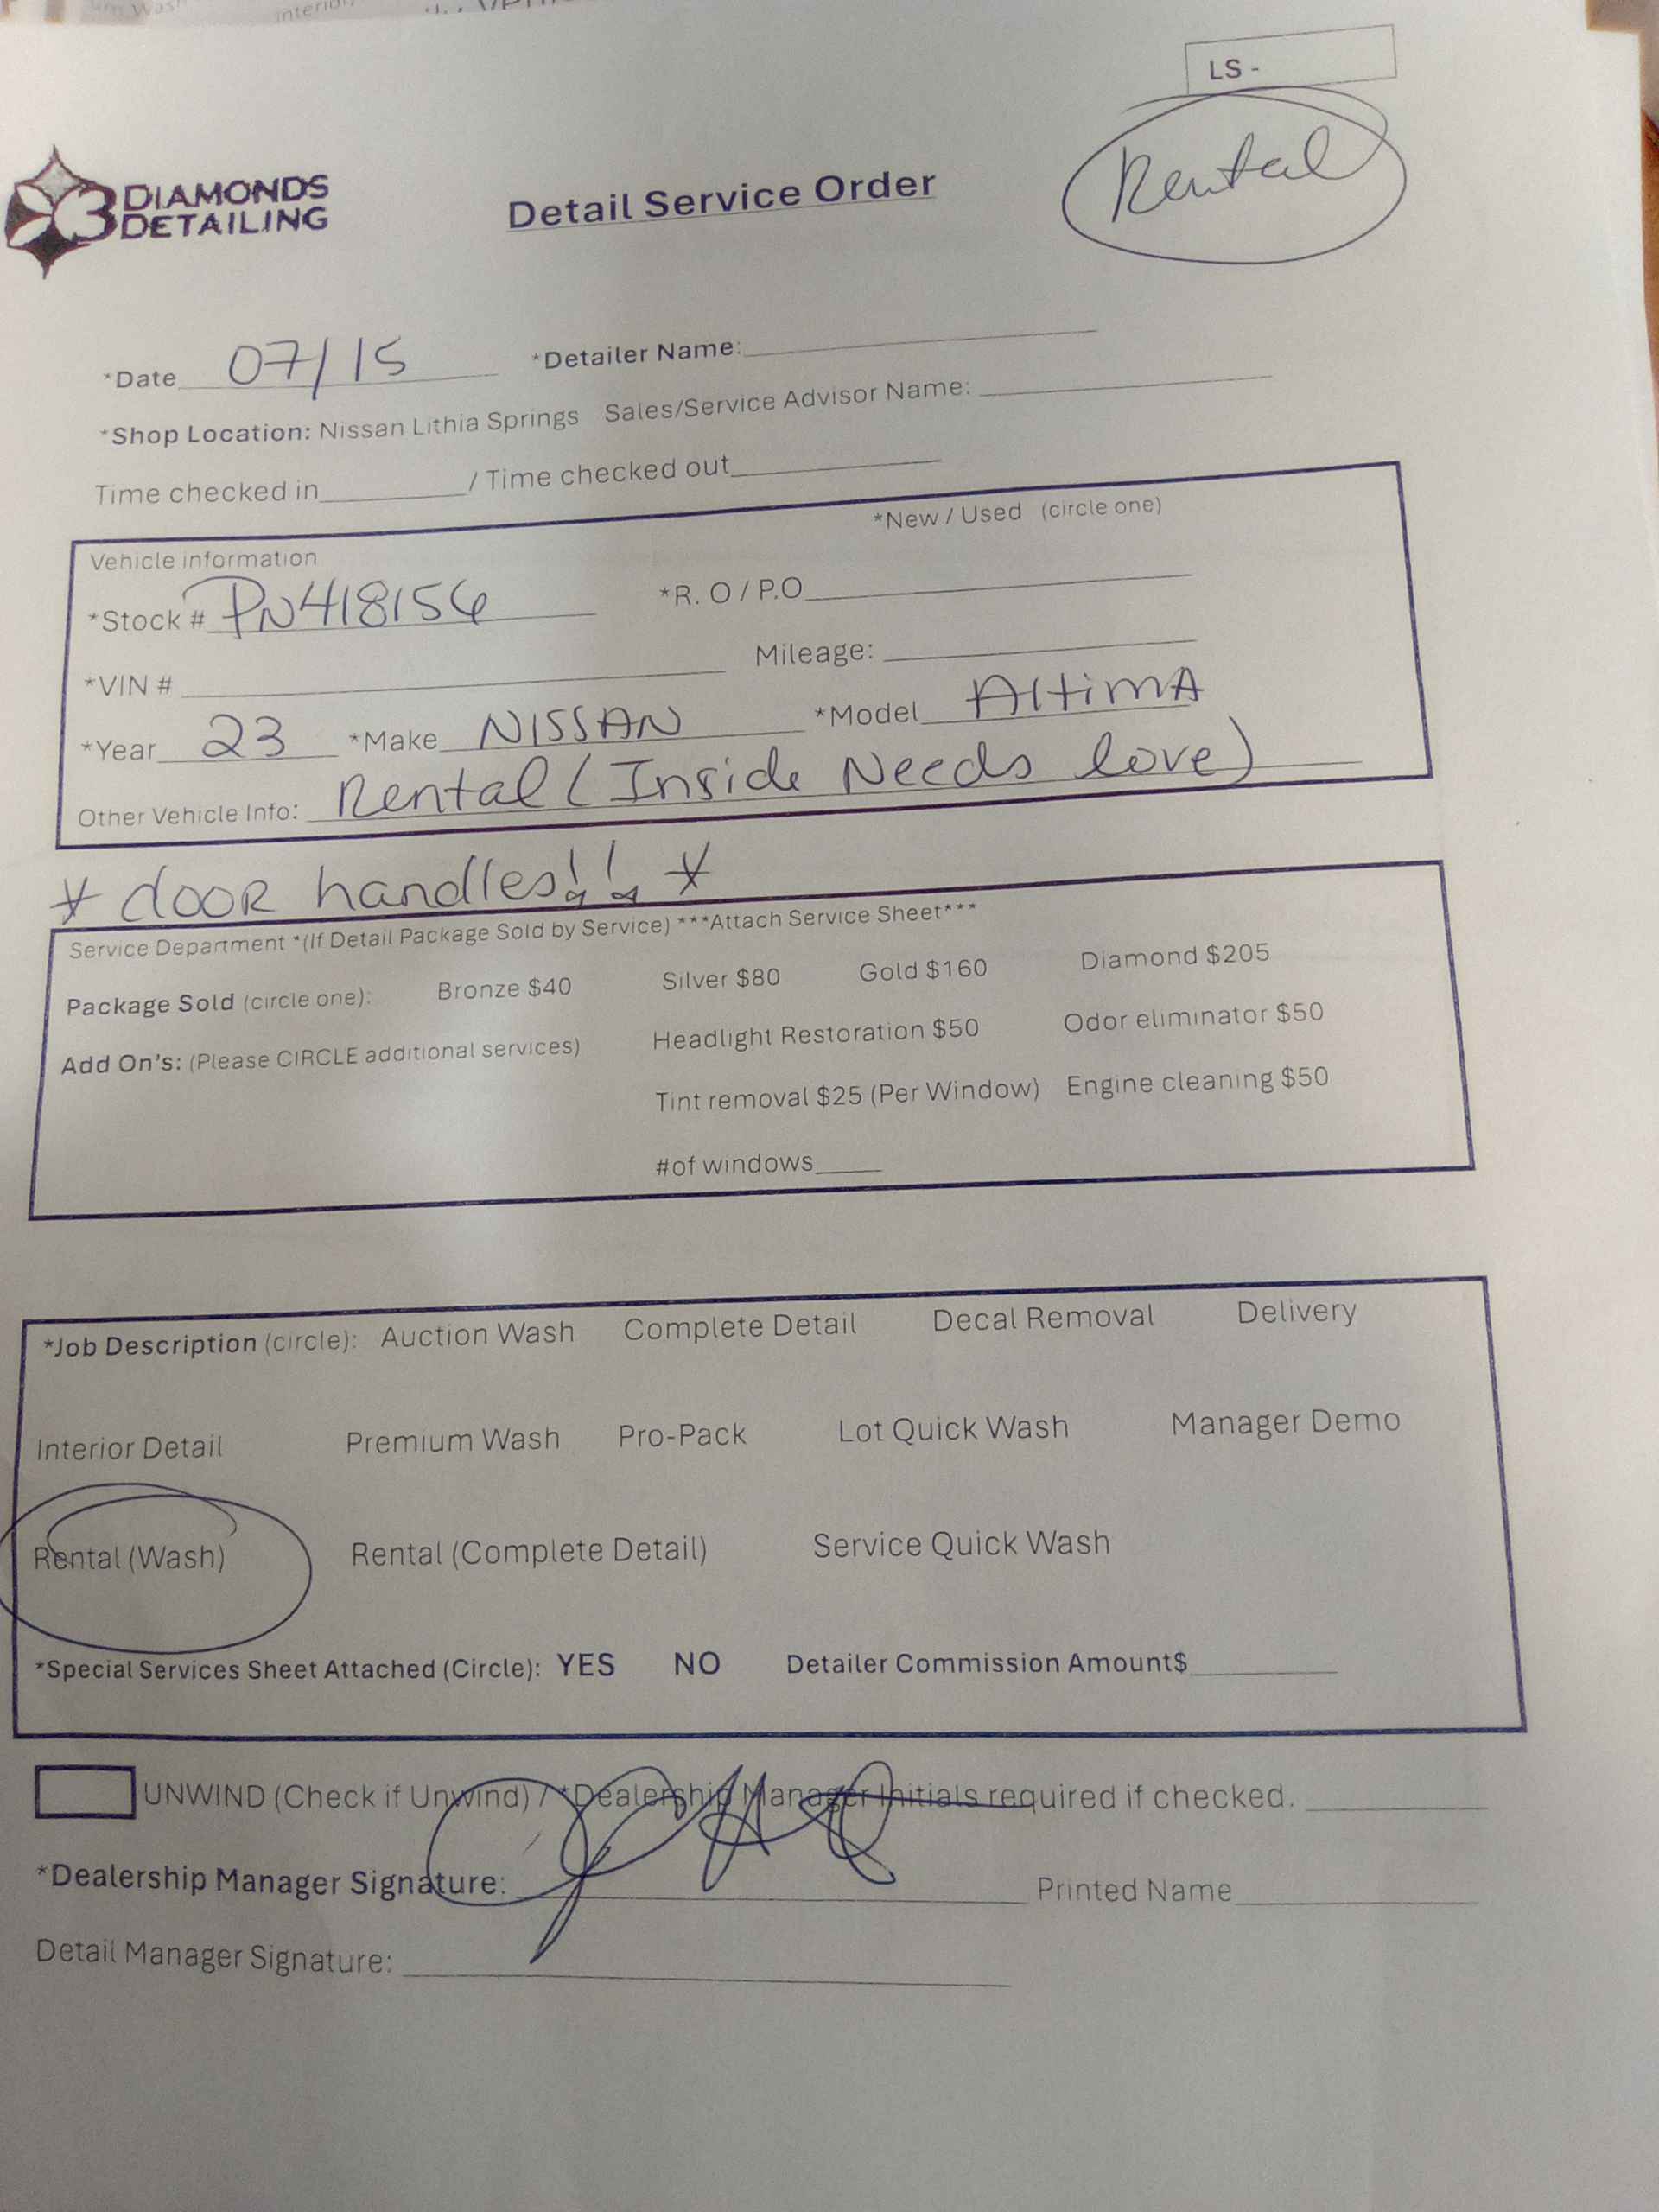 LS -
Rental
3 DIAMONDS
DETAILING
Detail Service Order
*Date 07/15 *Detailer Name:
*Shop Location: Nissan Lithia Springs Sales/Service Advisor Name:
Time checked in / Time checked out
Vehicle information *New / Used (circle one)
*Stock # PN418156 *R. O / P.O
*VIN # Mileage:
*Year 23 *Make NISSAN *Model AltimA
Other Vehicle Info: Rental (Inside Needs love)
* dooR handles!! *
Service Department *(If Detail Package Sold by Service) ***Attach Service Sheet***
Package Sold (circle one): Bronze $40 Silver $80 Gold $160 Diamond $205
Add On's: (Please CIRCLE additional services) Headlight Restoration $50 Odor eliminator $50
Tint removal $25 (Per Window) Engine cleaning $50
#of windows
*Job Description (circle): Auction Wash Complete Detail Decal Removal Delivery
Interior Detail Premium Wash Pro-Pack Lot Quick Wash Manager Demo
Rental (Wash) Rental (Complete Detail) Service Quick Wash
*Special Services Sheet Attached (Circle): YES NO Detailer Commission Amount$
UNWIND (Check if Unwind) / *Dealership Manager Initials required if checked.
*Dealership Manager Signature: Printed Name
Detail Manager Signature: